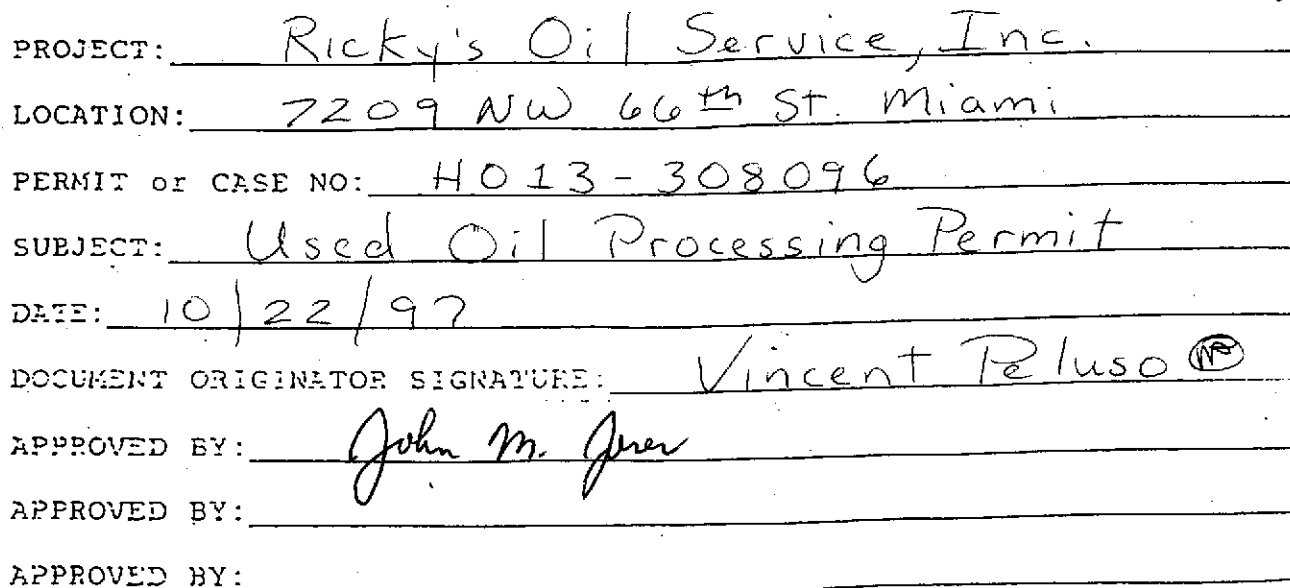 PROJECT: Ricky's Oil Service, Inc.
LOCATION: 7209 NW 66th St. Miami
PERMIT or CASE NO: HO13-308096
SUBJECT: Used Oil Processing Permit
DATE: 10/22/97
DOCUMENT ORIGINATOR SIGNATURE: Vincent Peluso
APPROVED BY: John M.
APPROVED BY:
APPROVED BY: